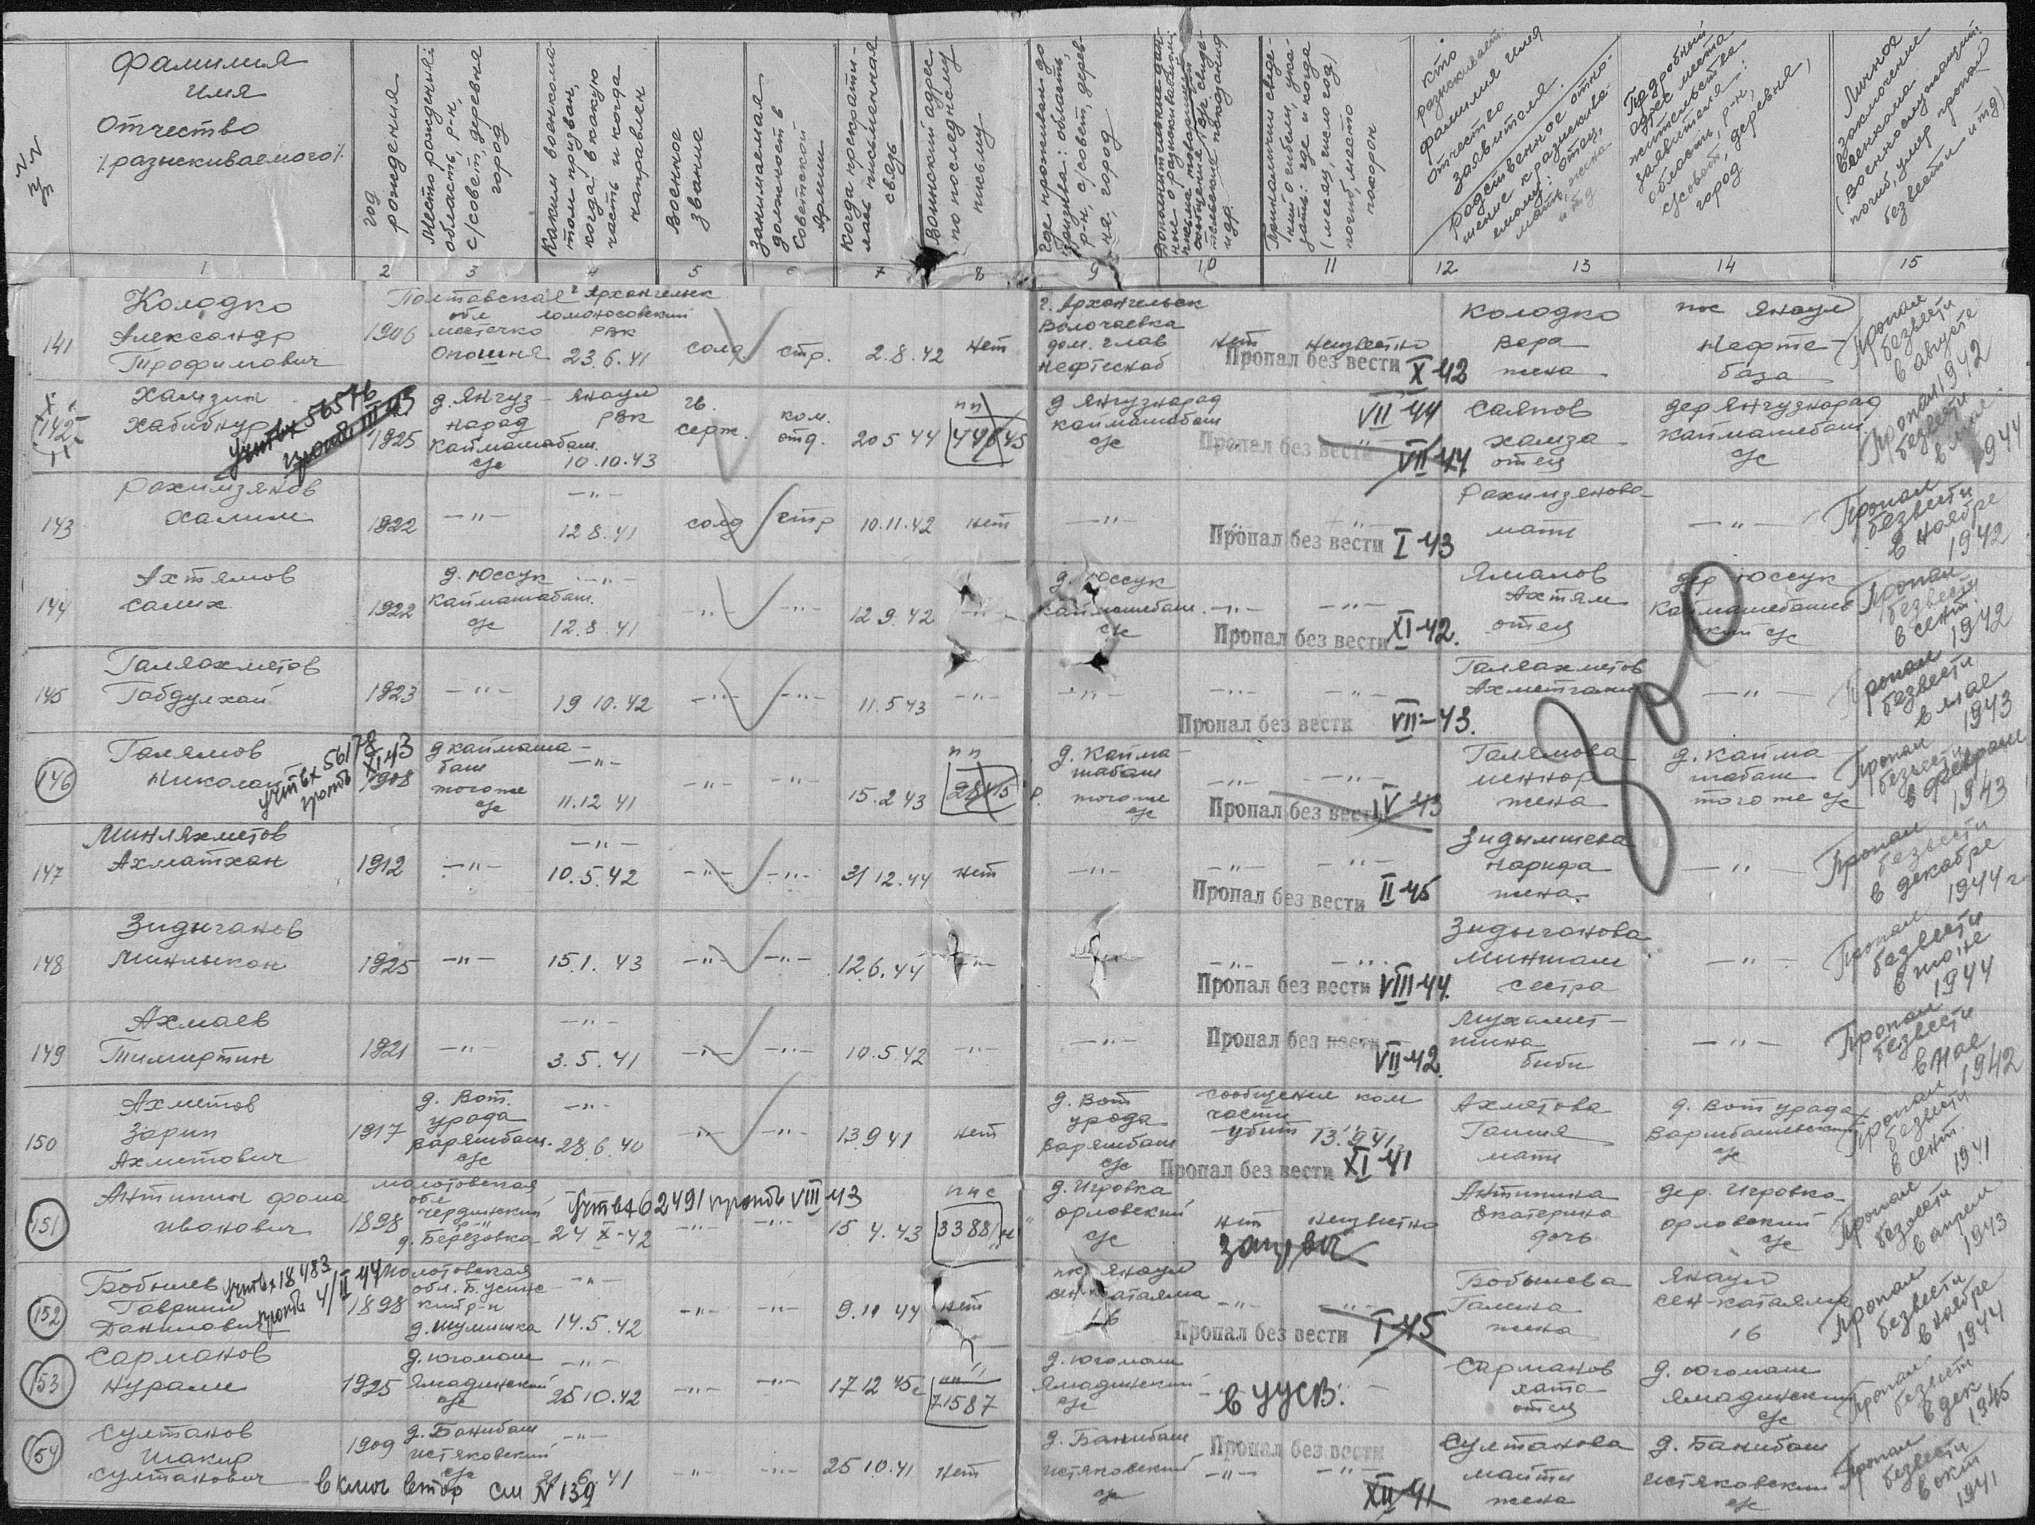 №№ п/п
Фамилия
Имя
Отчество
/разыскиваемого/.
год рождения
Место рождения: область, р-н, с/совет, деревня город
Каким военкоматом призван, когда, в какую часть и когда направлен
Военное звание
Занимаемая должность в Советской Армии
Когда прекратилась письменная связь
Воинский адрес по последнему письму
Где проживал до призыва: область, р-н, с/совет, деревня, город
(месяц, число год)
Кто разыскивает: фамилия имя отчество заявителя.
Родственное отношение к разыскиваемому: отец, мать, жена и тд
Подробный адрес места жительства заявителя: область, р-н, с/совет, деревня, город
Личное заключение военкома (военнослужащий: погиб, умер, пропал безвести и тд)
1 2 3 4 5 6 7 8 9 10 11 12 13 14 15
141 Колодко Александр Трофимович 1906 Полтавская обл местечко Опошня г Архангельск Ломоносовский РВК 23.6.41 солд стр. 2.8.42 нет
г. Архангельск Волочаевка дом. глав нефтеснаб нет неизвестно Пропал без вести X-42 Колодко Вера жена пос Янаул Нефтебаза Пропал безвести в августе 1942
142 Хамзин Хабибнур учтвх 56576 1925 д. Янгузнарад Каймашабаш. с/с Янаул РВК 10.10.43 гв. серж. ком. отд. 20 5 44 пп
д Янгузнарад Каймашабаш с/с VII-44 Пропал без вести VII-44 Саяпов Хамза отец дер Янгузнарад Каймашабаш с/с Пропал безвести 1944
143 Рахимзянов Халим 1922 —"— —"— 12 8.41 солд стр 10.11.42 нет
—"— Пропал без вести I-43 Рахимзянова мать —"— Пропал безвести в ноябре 1942
144 Ахтямов Салих 1922 д. Юссук Каймашабаш. с/с —"— 12.8.41 —"— —"— 12 9.42 —"—
д. Юссук Каймашабаш. с/с —"— —"— Пропал без вести XI-42. Ямалов Ахтям отец дер Юссук Каймашабашевский с/с Пропал безвести в сент. 1942
145 Галяахметов Габдулхай 1923 —"— 19 10.42 —"— —"— 11.5 43 —"—
—"— —"— —"— Пропал без вести VII-43. Галяахметов Ахметгани —"— Пропал безвести в мае 1943
146 Галямов Николай учтвх 56178 XI-43 1908 д Каймашабаш тогоже с/с —"— 11.12 41 —"— —"— 15.2 43 пп
д. Каймашабаш тогоже с/с —"— —"— Пропал без вести IV-43 Галямова жена д. Каймашабаш тогоже с/с Пропал безвести в феврале 1943
147 Миняхметов Ахматхан 1912 —"— —"— 10.5.42 —"— —"— 31 12.44 нет
—"— —"— —"— Пропал без вести II-45 Зидымшева Нарифа жена. —"— Пропал безвести в декабре 1944 г
148 Зидыганов Минлыкан 1925 —"— 15.1. 43 —"— —"— 12 6.44
—"— —"— Пропал без вести VIII-44. Зидыганова Миншаи сестра —"— Пропал безвести в июне 1944
149 Ахмаев Тимиртин 1921 —"— —"— 3.5.41 —"— —"— 10.5.42 —"—
—"— Пропал без вести VII-42. биби —"— Пропал безвести в мае 1942
150 Ахметов Зарип Ахметович 1917 д. Вот. урада Варяшбаш. с/с —"— 28.6.40 —"— —"— 13 9 41 нет
д. Вот урада Варяшбаш с/с сообщение ком части убит 13.9 41 Пропал без вести XI-41 Ахметова Галия мать д. Вот урада с/с Пропал безвести в сент 1941
151 Антипин Фома Иванович 1898 Молотовская обл Чердынский р-н д. Березовка учтвх 62491 VIII-43 24 X-42 —"— —"— 15 4. 43 3388
д. Игровка Орловский с/с нет неизвестно Антипина Екатерина дочь дер. Игровка Орловский с/с Пропал безвести в апреле 1943
152 Бобышев Гавриил Данилович учтвх 18483 4/II-44 1898 Молотовская обл. —"— 14.5.42 —"— —"— 9.11 44 нет
пос Янаул 16 —"— —"— Пропал без вести I-45 Бобышева Галина жена Янаул Сен-Катаяма 16 Пропал безвести в ноябре 1944
153 Сарманов Нурали 1925 д. Югомаш Ямадинский с/с —"— 25 10.42 —"— —"— 17 12 45г 71587
д. Югомаш Ямадинский с/с в УУСВ. Сарманов хата отец д. Югомаш Ямадинский с/с Пропал безвести в дек 1945
154 Султанов Шакир Султанович 1909 д. Банибаш Истяковский с/с —"— 21 6 41 —"— —"— 25 10.41 нет
включ втор см N 139
д. Банибаш Истяковский с/с Пропал без вести —"— —"— XII-41 Султанова жена д. Банибаш Истяковский с/с Пропал безвести в окт 1941